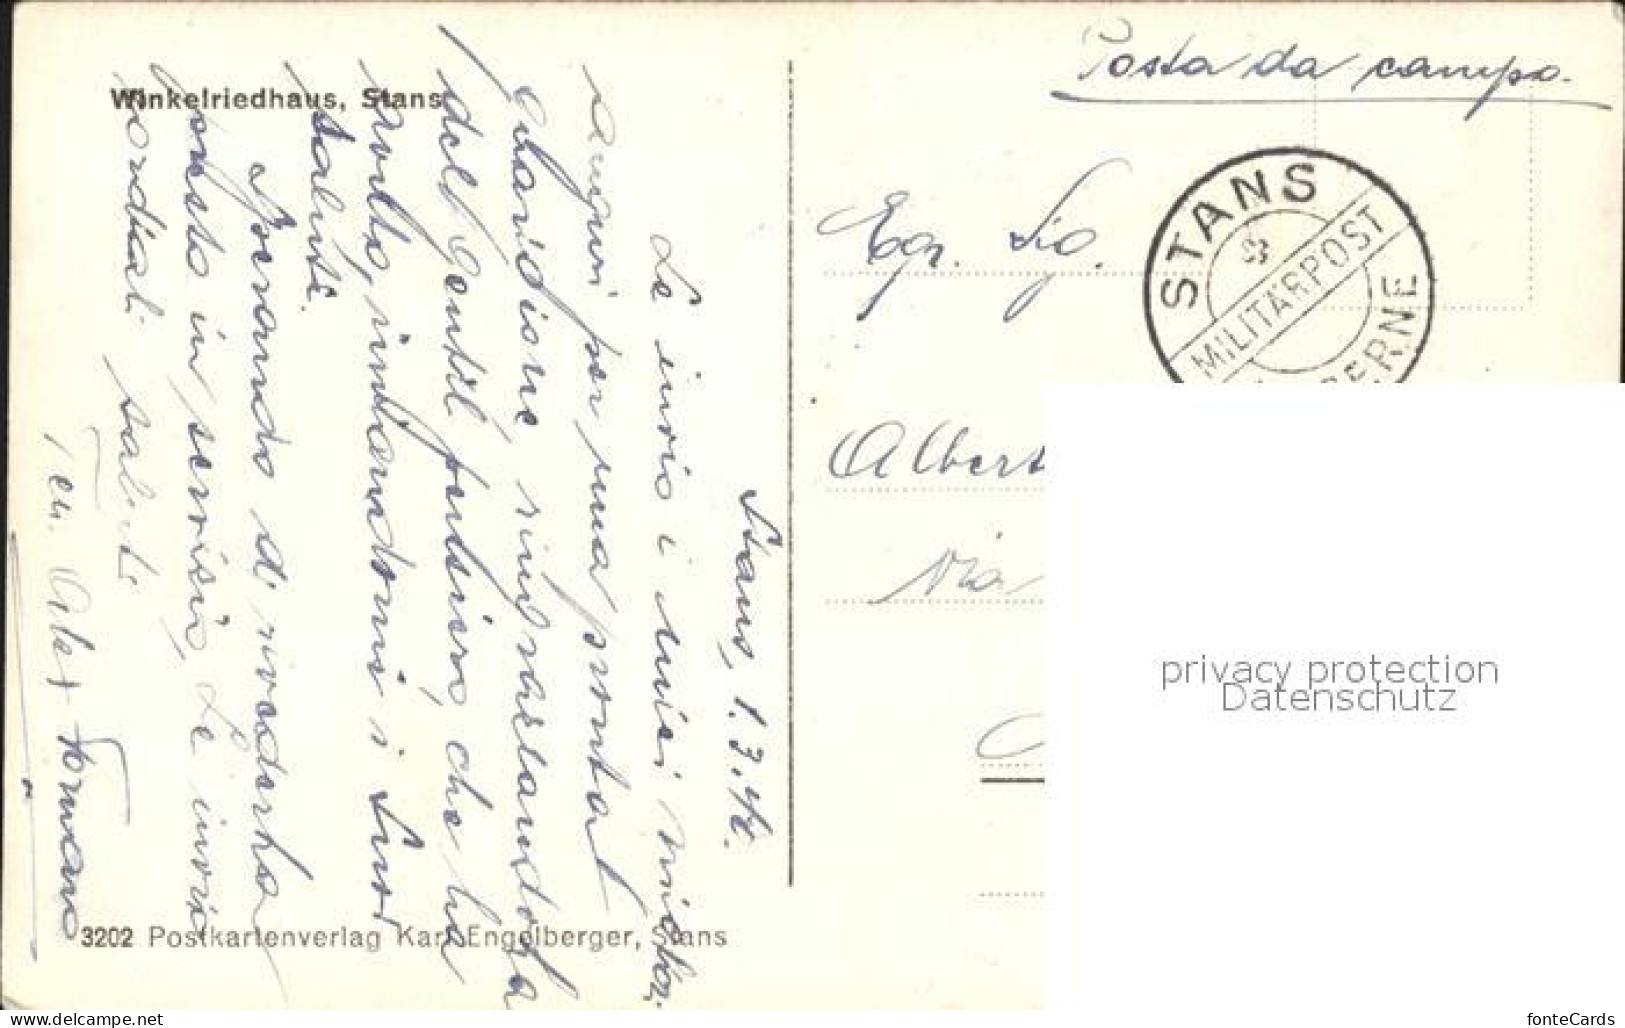 Winkelriedhaus, Stans
Stans, 1.3.44.
Le invio i miei miglior
auguri per una pronta
guarigione, ringraziandola
del gentil pensiero, che ha
avuto, inviandomi i Suoi
saluti.
Sperando di rivederla
presto in servizio, Le invio
cordiali saluti
Ten.
3202 Postkartenverlag Karl Engelberger, Stans
Posta da campo.
STANS
MILITÄRPOST
CASERNE
Egr. Sig.
Albert
Via
privacy protection
Datenschutz
www.delcampe.net
fonteCards